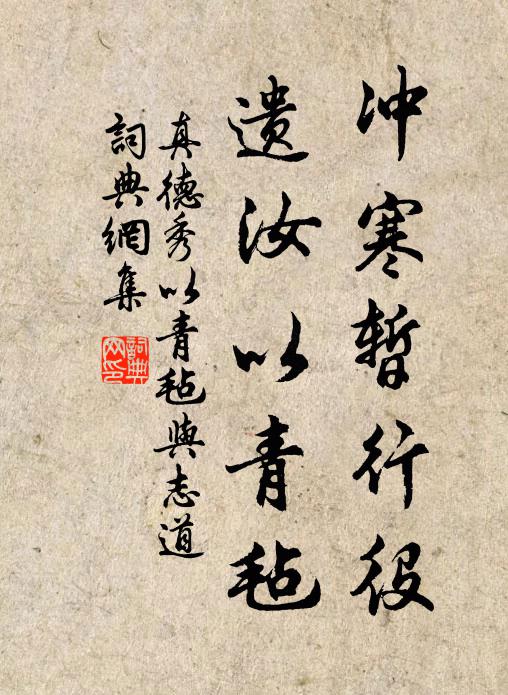 冲寒暂行役
遗汝以青毡
真德秀以青毡與志道
詞典網集
詞典網印